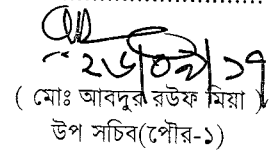 ২৬/০৯/১৭
( মোঃ আবদুর রউফ মিয়া )
উপ সচিব(পৌর-১)